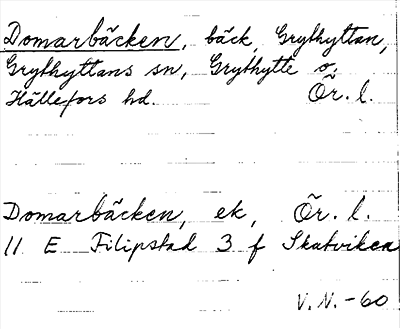 Domarbäcken, bäck, Grythyttan,
Grythyttans sn, Grythytte o.
Hällefors hd. Ör. l.
Domarbäcken, ek, Ör. l.
11 E Filipstad 3 f Skatviken
V.N. -60